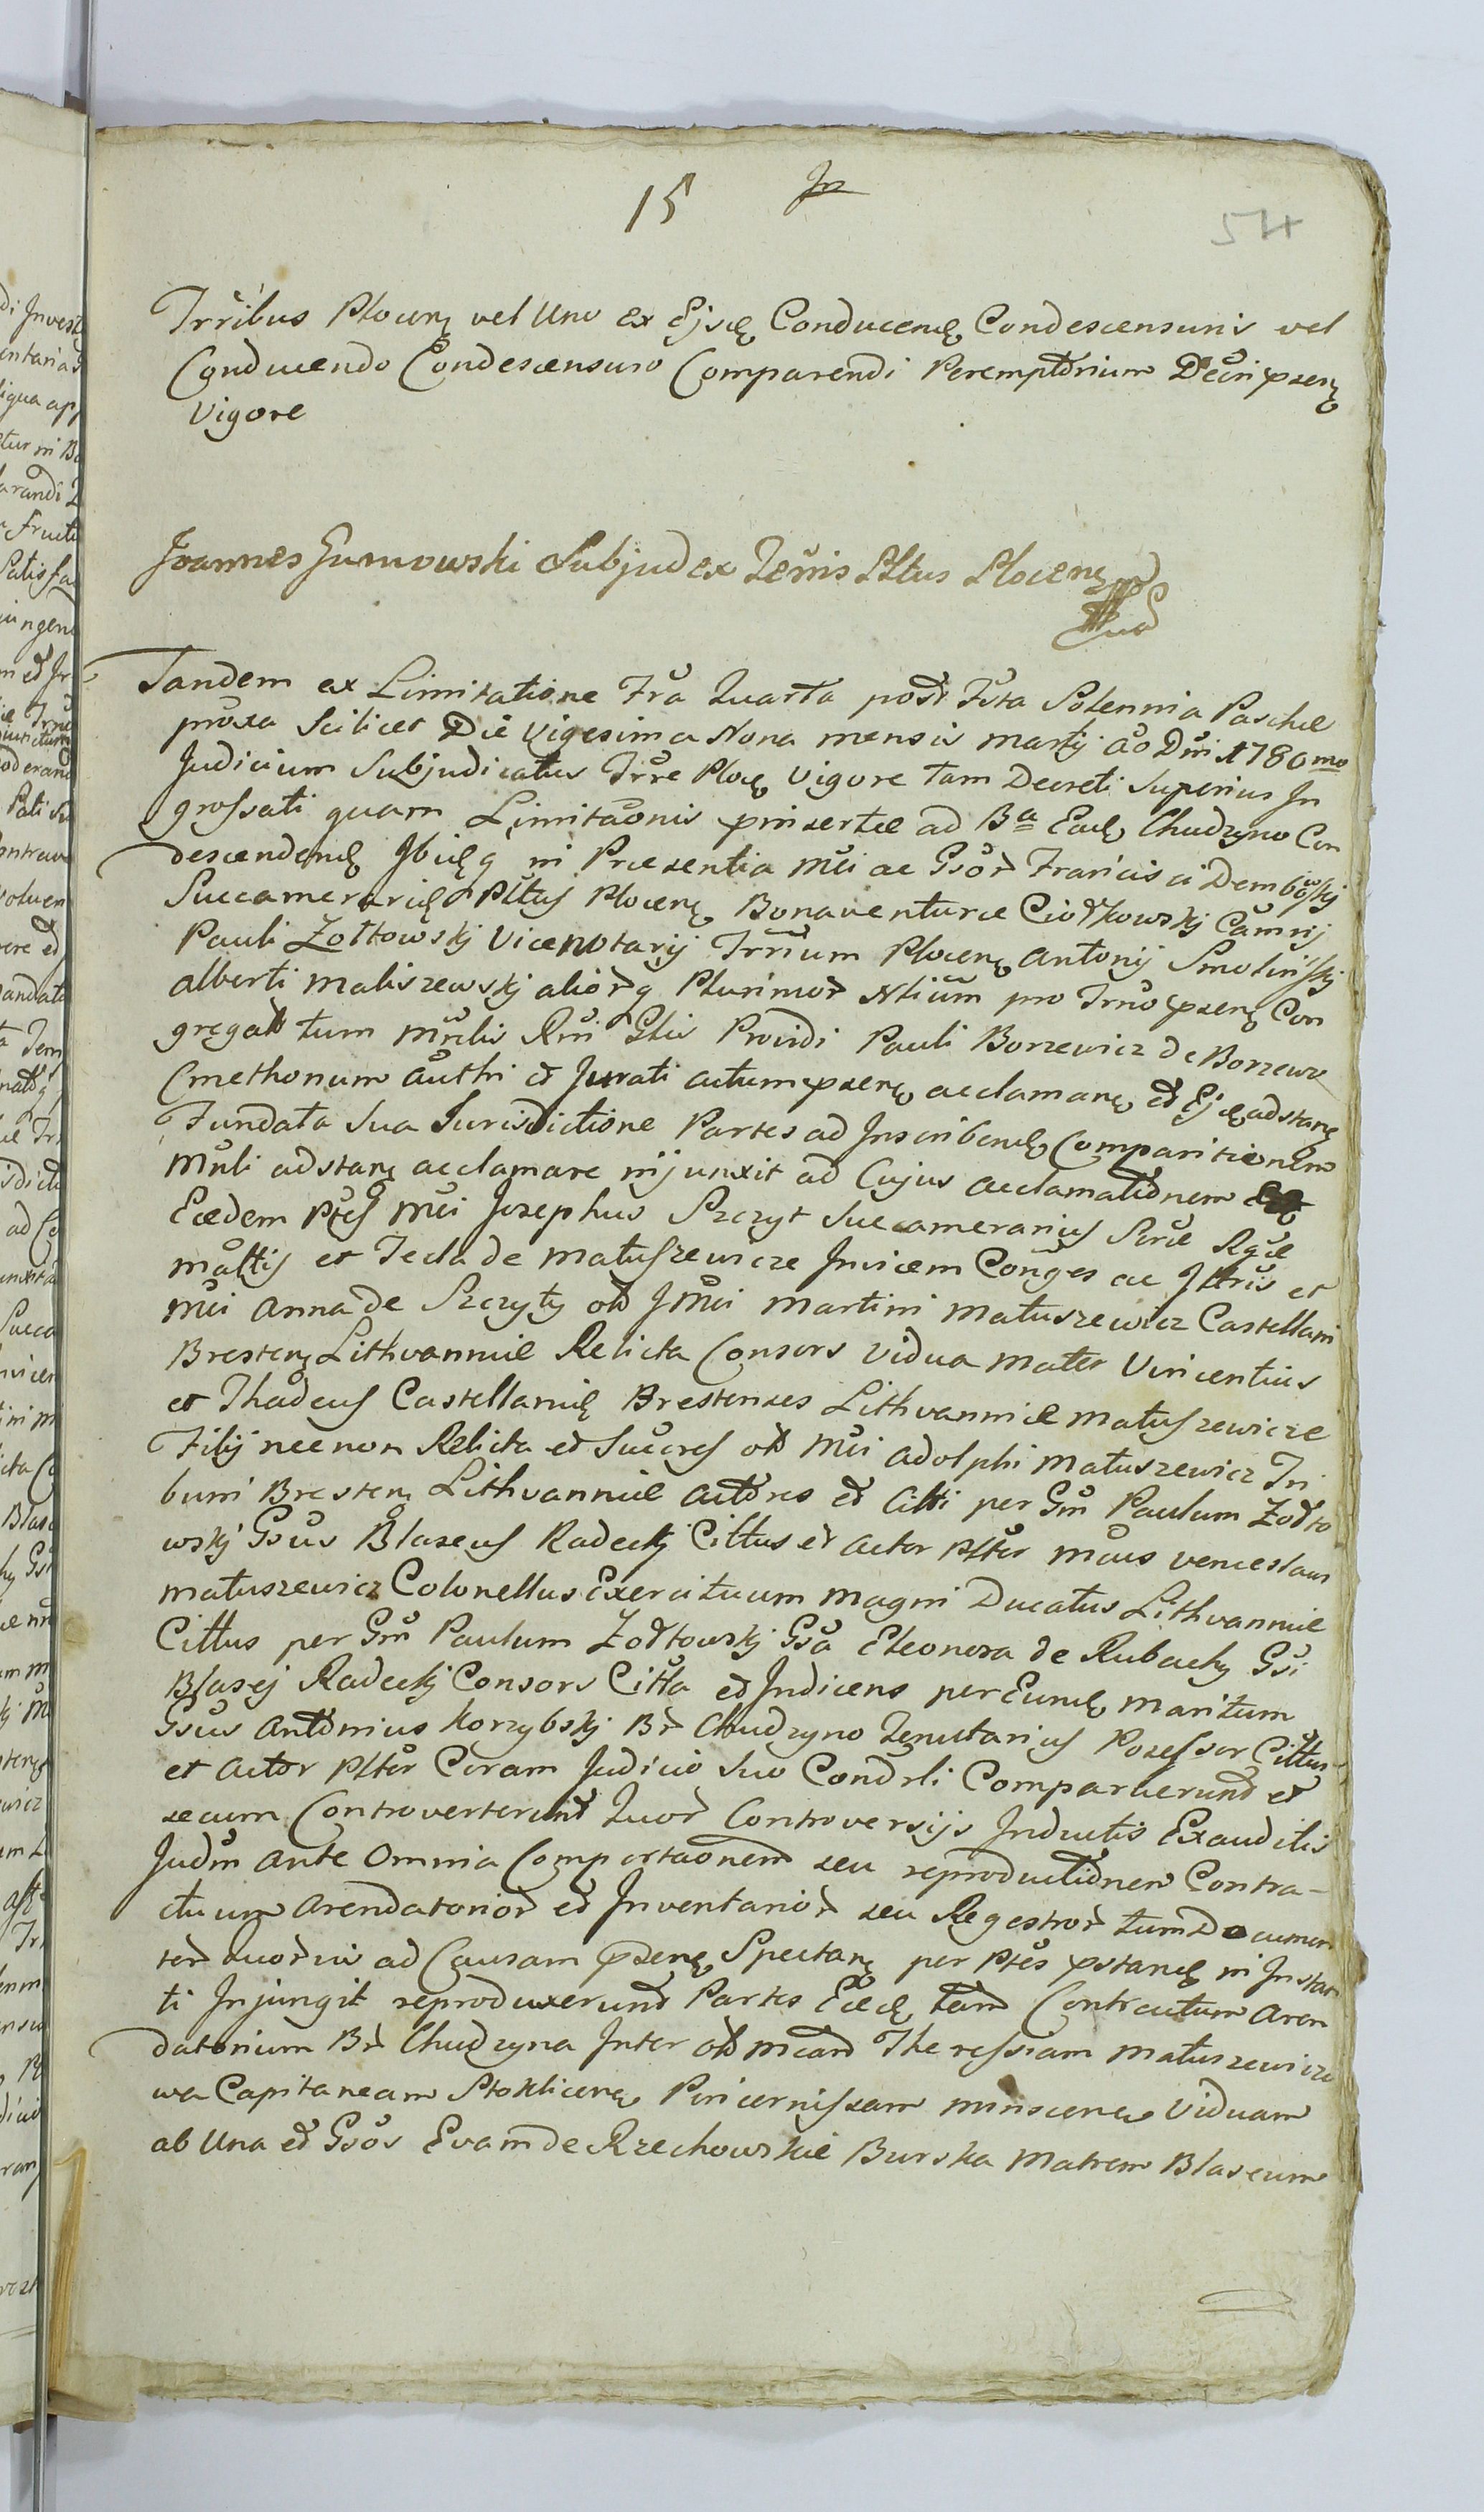 15 Jn
54
Trribus Plocen vel Uno ex Ejsd Conducend Condescensuris vel
Conducendo Condescensuro Comparendi Peremptorium Decri pzen
Vigore
Joannes Gumowski Subjudex Terris Pltus Plocen
Tandem ex Limitatione Fra Quarta post Fsta Solennia Paschae
proxa Scilicet Die Vigesima Nona mensis Martij Ao Dni 1780mo
Judicium Subjudicatus Trre Ploc Vigore tam Decreti Superius In
grossati quam Limitaonis prinsertae ad Ba Ead Chudzyno Con
descendend Ibidq in Praesentia Mci ac Gsor Francisci Dembowskij
Succamerarid Pltus Plocen Bonaventurae Ciołkowskj Camrij
Pauli Zołtowskj Vicenotarij Trrium Plocen Antonij Smolinskj
Alberti Maliszewskj aliorq Plurimor Nlium pro Trno pzen Con
gregat tum Mnlis Rni Glis Providi Pauli Borzewicz de Borzewo
Cmethonum authri et Jurati actum pzen acclaman et Ejd adstan
Fundata Sua Jurisdictione Partes ad Inscribend Comparitionem
Mnli adstan acclamare injunxit ad Cujus acclamationem
Eaedem Ptes Mci Josephus Szczyt Succamerarius Scrae Rgae
Mattis et Tecla de Matuszewicze Invicem Conges ac Jllris et
Mci Anna de Szczyty olt JMci Martini Matuszewicz Castellani
Bresten Lithvanniae Relicta Consors Vidua Mater Vincentius
et Thadeus Castellanid Brestenses Lithvanniae Matuszewicze
Filij necnon Relicta et Succres olt Mci Adolphi Matuszewicz Tri
buni Bresten Lithvanniae Actores et Citti per Gm Paulum Zołto
wskj Gsus Blaseus Radeckj Cittus et Actor Plter Mcus Venceslaus
Matuszewicz Colonellus Exercituum Magni Ducatus Lithvanniae
Cittus per Gm Paulum Zołtowskj Gsa Eleonora de Rubachy Gsi
Blasej Radeckj Consors Citta et Indicens per Eund Maritum
Gsus Antonius Korzybskj Br Chudzyno Tenutarius Posessor Cittus
et Actor Plter Coram Judicio Suo Condrli Comparuerunt et
secum Controverterunt Quor Controversijs Inductis Exauditis
Judm Ante Omnia Comportaonem seu reproductionem Contra-
ctuum Arendatorior et Inventarior seu Regestror tum Documen
tor Quorvis ad Causam pzen Spectan per Ptes pstand in Instan
ti Injungit reproduxerunt Partes Eaed tam Contractum Aren
datorium Br Chudzyna Inter olt Mcam Theressiam Matuszewiczo
wa Capitaneam Stoklicen Pincernissam Minscen Viduam
ab Una et Gsos Evam de Rzechowskie Burska Matrem Blaseum